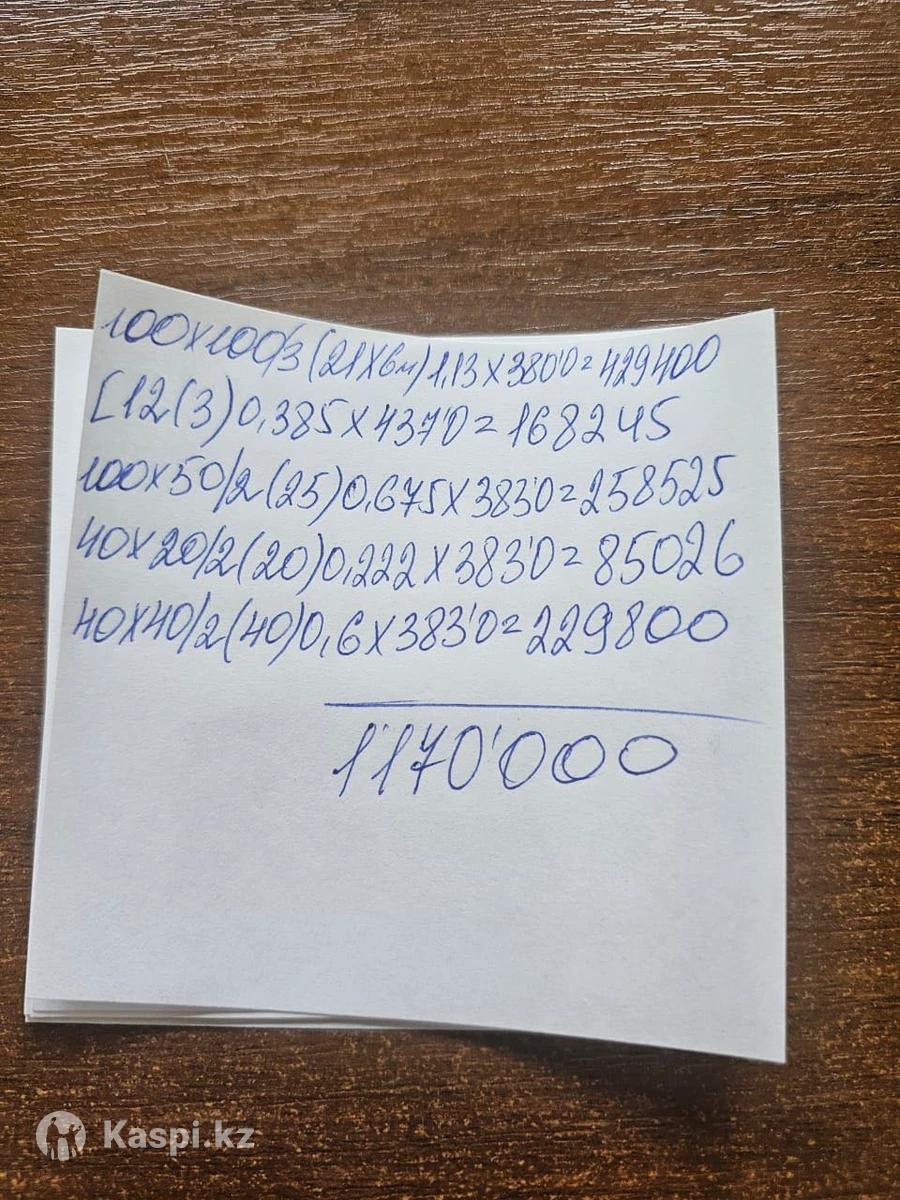 100x100/3 (21x6м) 1,13x380'0=429400
[12(3)0,385x437'0=168245
100x50/2(25)0,675x383'0=258525
40x20/2(20)0,222x383'0=85026
40x40/2(40)0,6x383'0=229800
1'170'000
Kaspi.kz